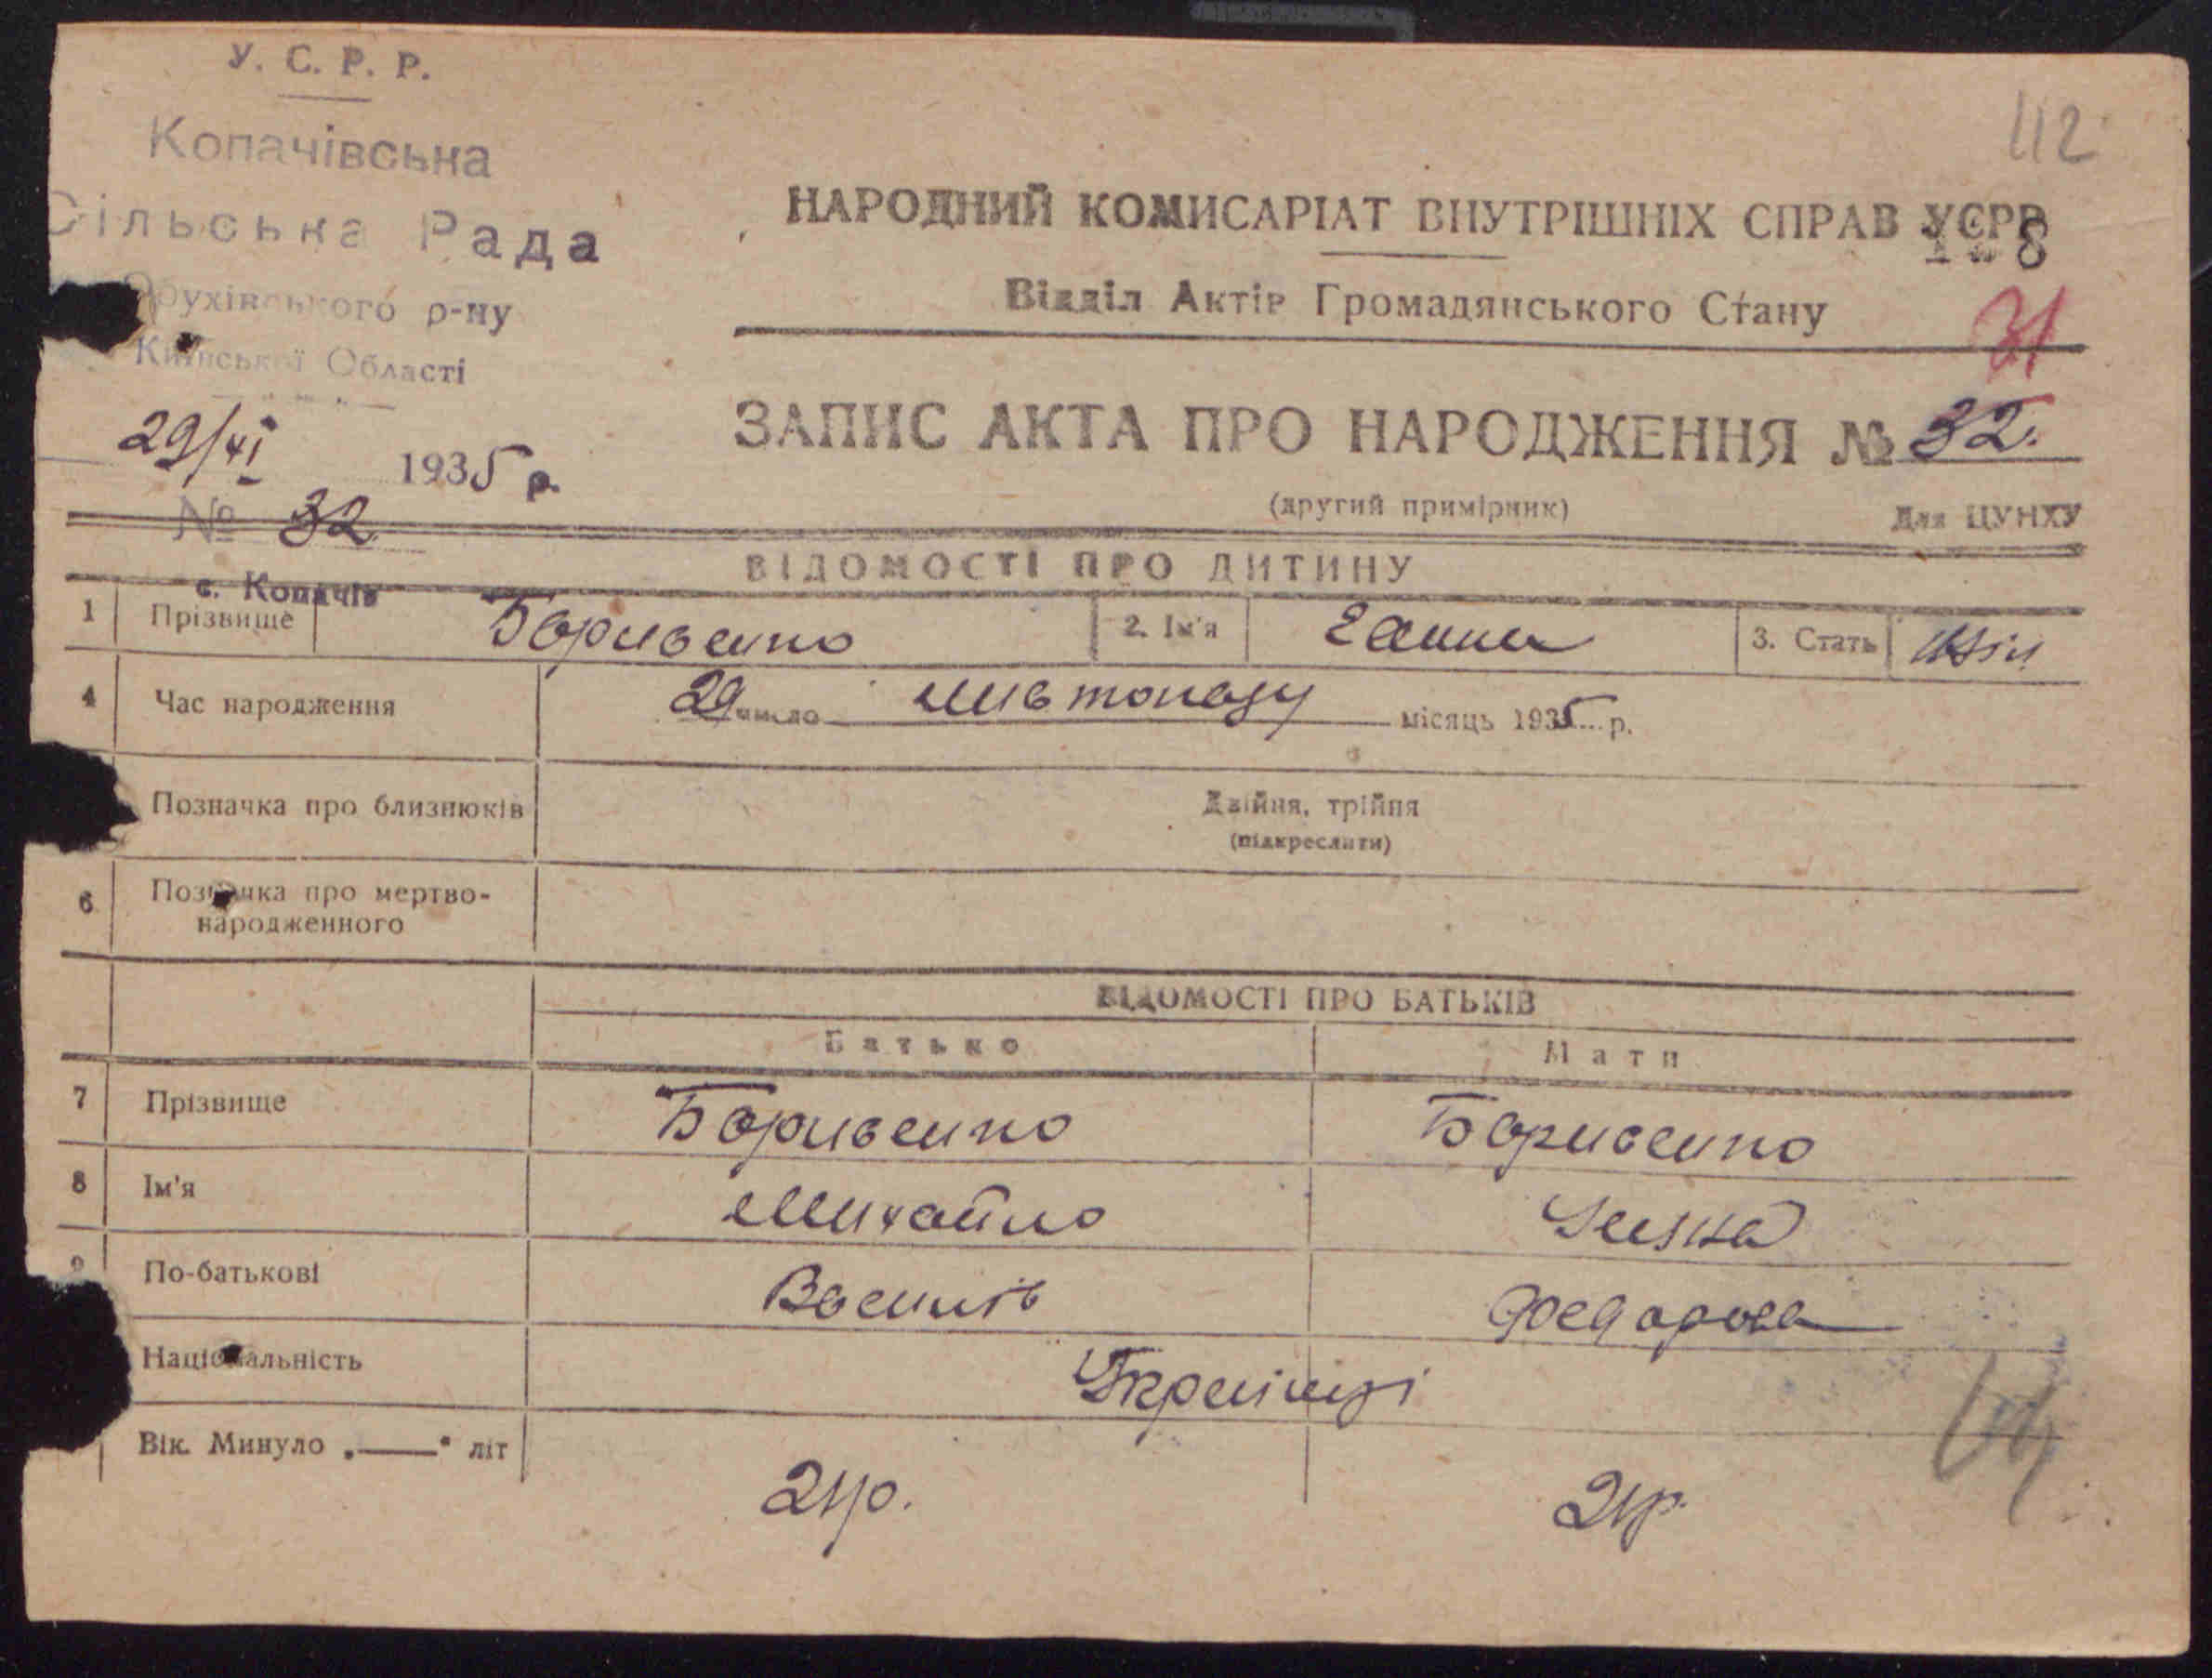 У. С. Р. Р.
Копачівська
Сільська Рада
р-ну
Київської Області
29/XI 1935 р.
№ 32
с. Копачів
112
НАРОДНИЙ КОМИСАРІАТ ВНУТРІШНІХ СПРАВ УСРР
8
Відділ Актів Громадянського Стану
31
ЗАПИС АКТА ПРО НАРОДЖЕННЯ № 32.
(другий примірник) Для ЦУНХУ
ВІДОМОСТІ ПРО ДИТИНУ
1 Прізвище Борисенко 2. Ім'я Ганна 3. Стать жін
4 Час народження 29 число листопаду місяць 1935 р.
Позначка про близнюків Двійня, трійня
(підкреслити)
6 Позначка про мертво-
народженного
ВІДОМОСТІ ПРО БАТЬКІВ
Батько Мати
7 Прізвище Борисенко Борисенко
8 Ім'я Михайло
9 По-батькові Василів Федорова
Національність Українці
Вік. Минуло „——“ літ 21р. 21р.